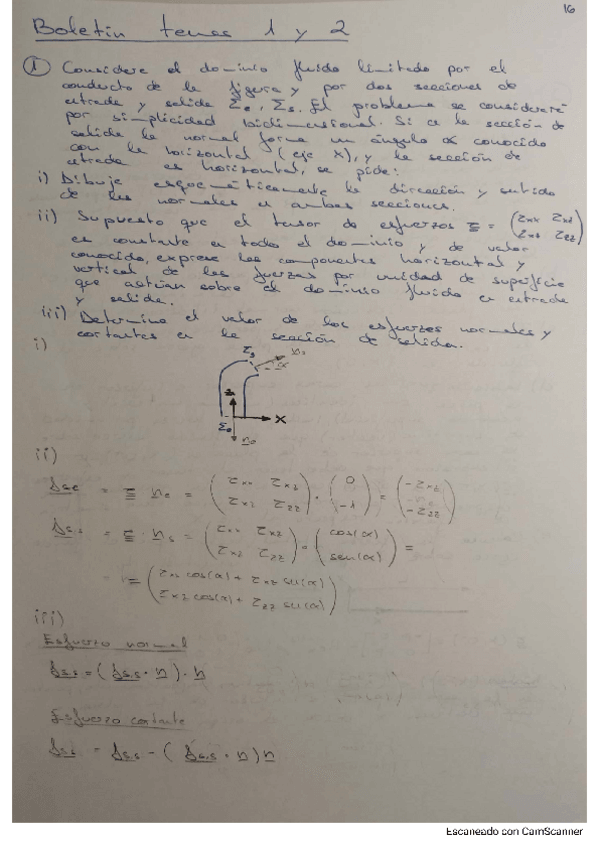 16
Boletín temas 1 y 2
① Considere el dominio fluido limitado por el
conducto de la figura y por dos secciones de
entrada y salida Σe, Σs. El problema se considerará
por simplicidad bidimensional. Si en la sección de
salida la normal forma un ángulo α conocido
con la horizontal (eje x), y la sección de
entrada es horizontal, se pide:
i) Dibuje esquemáticamente la dirección y sentido
de las normales en ambas secciones.
ii) Supuesto que el tensor de esfuerzos τ = (τxx τxz
τxz τzz)
es constante en todo el dominio y de valor
conocido, exprese las componentes horizontal y
vertical de las fuerzas por unidad de superficie
que actúan sobre el dominio fluido en entrada
y salida.
iii) Determine el valor de los esfuerzos normales y
cortantes en la sección de salida.
i)
Σs ns
α
z
x
Σe
ne
ii)
fse = τ · ne = (τxx τxz
τxz τzz) · (0
-1) = (-τxz
-τzz)
fss = τ · ns = (τxx τxz
τxz τzz) · (cos(α)
sen(α)) =
= (τxx cos(α) + τxz sen(α)
τxz cos(α) + τzz sen(α))
iii)
Esfuerzo normal
fss = (fss · n) · n
Esfuerzo cortante
fss = fss - (fss · n) n
Escaneado con CamScanner